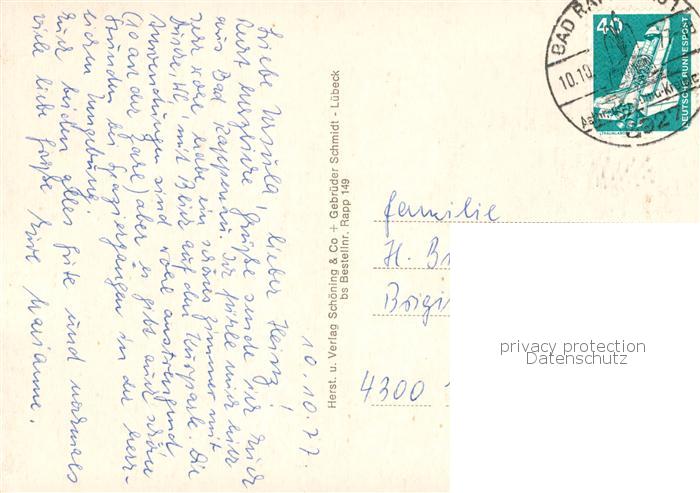 10.10.77.
Liebe Ursula, lieber Heinz!
Kurz Grüße sende ich Euch
aus Bad Rappenau. Ich fühle mich hier
sehr wohl, habe ein schönes Zimmer mit
Blick auf den Kurpark. Die
Anwendungen sind sehr anstrengend
(10 an der Zahl) aber es gibt auch schöne
Stunden bei Spaziergängen in der herr-
lichen Umgebung.
Euch beiden alles Gute und nochmals
viele liebe Grüße Eure Marianne.
Herst. u. Verlag Schöning & Co + Gebrüder Schmidt - Lübeck
bs Bestellnr. Rapp 149
BAD RAPPENAU 1
10.10.
6927
40
DEUTSCHE BUNDESPOST
Familie
H. B
Brigi
4300
privacy protection
Datenschutz